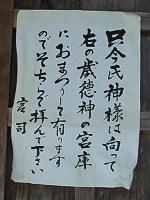 只今氏神様は向って
右の歳徳神の宮庫
におまつりして有ります
のでそちらで拝んで下さい
宮司